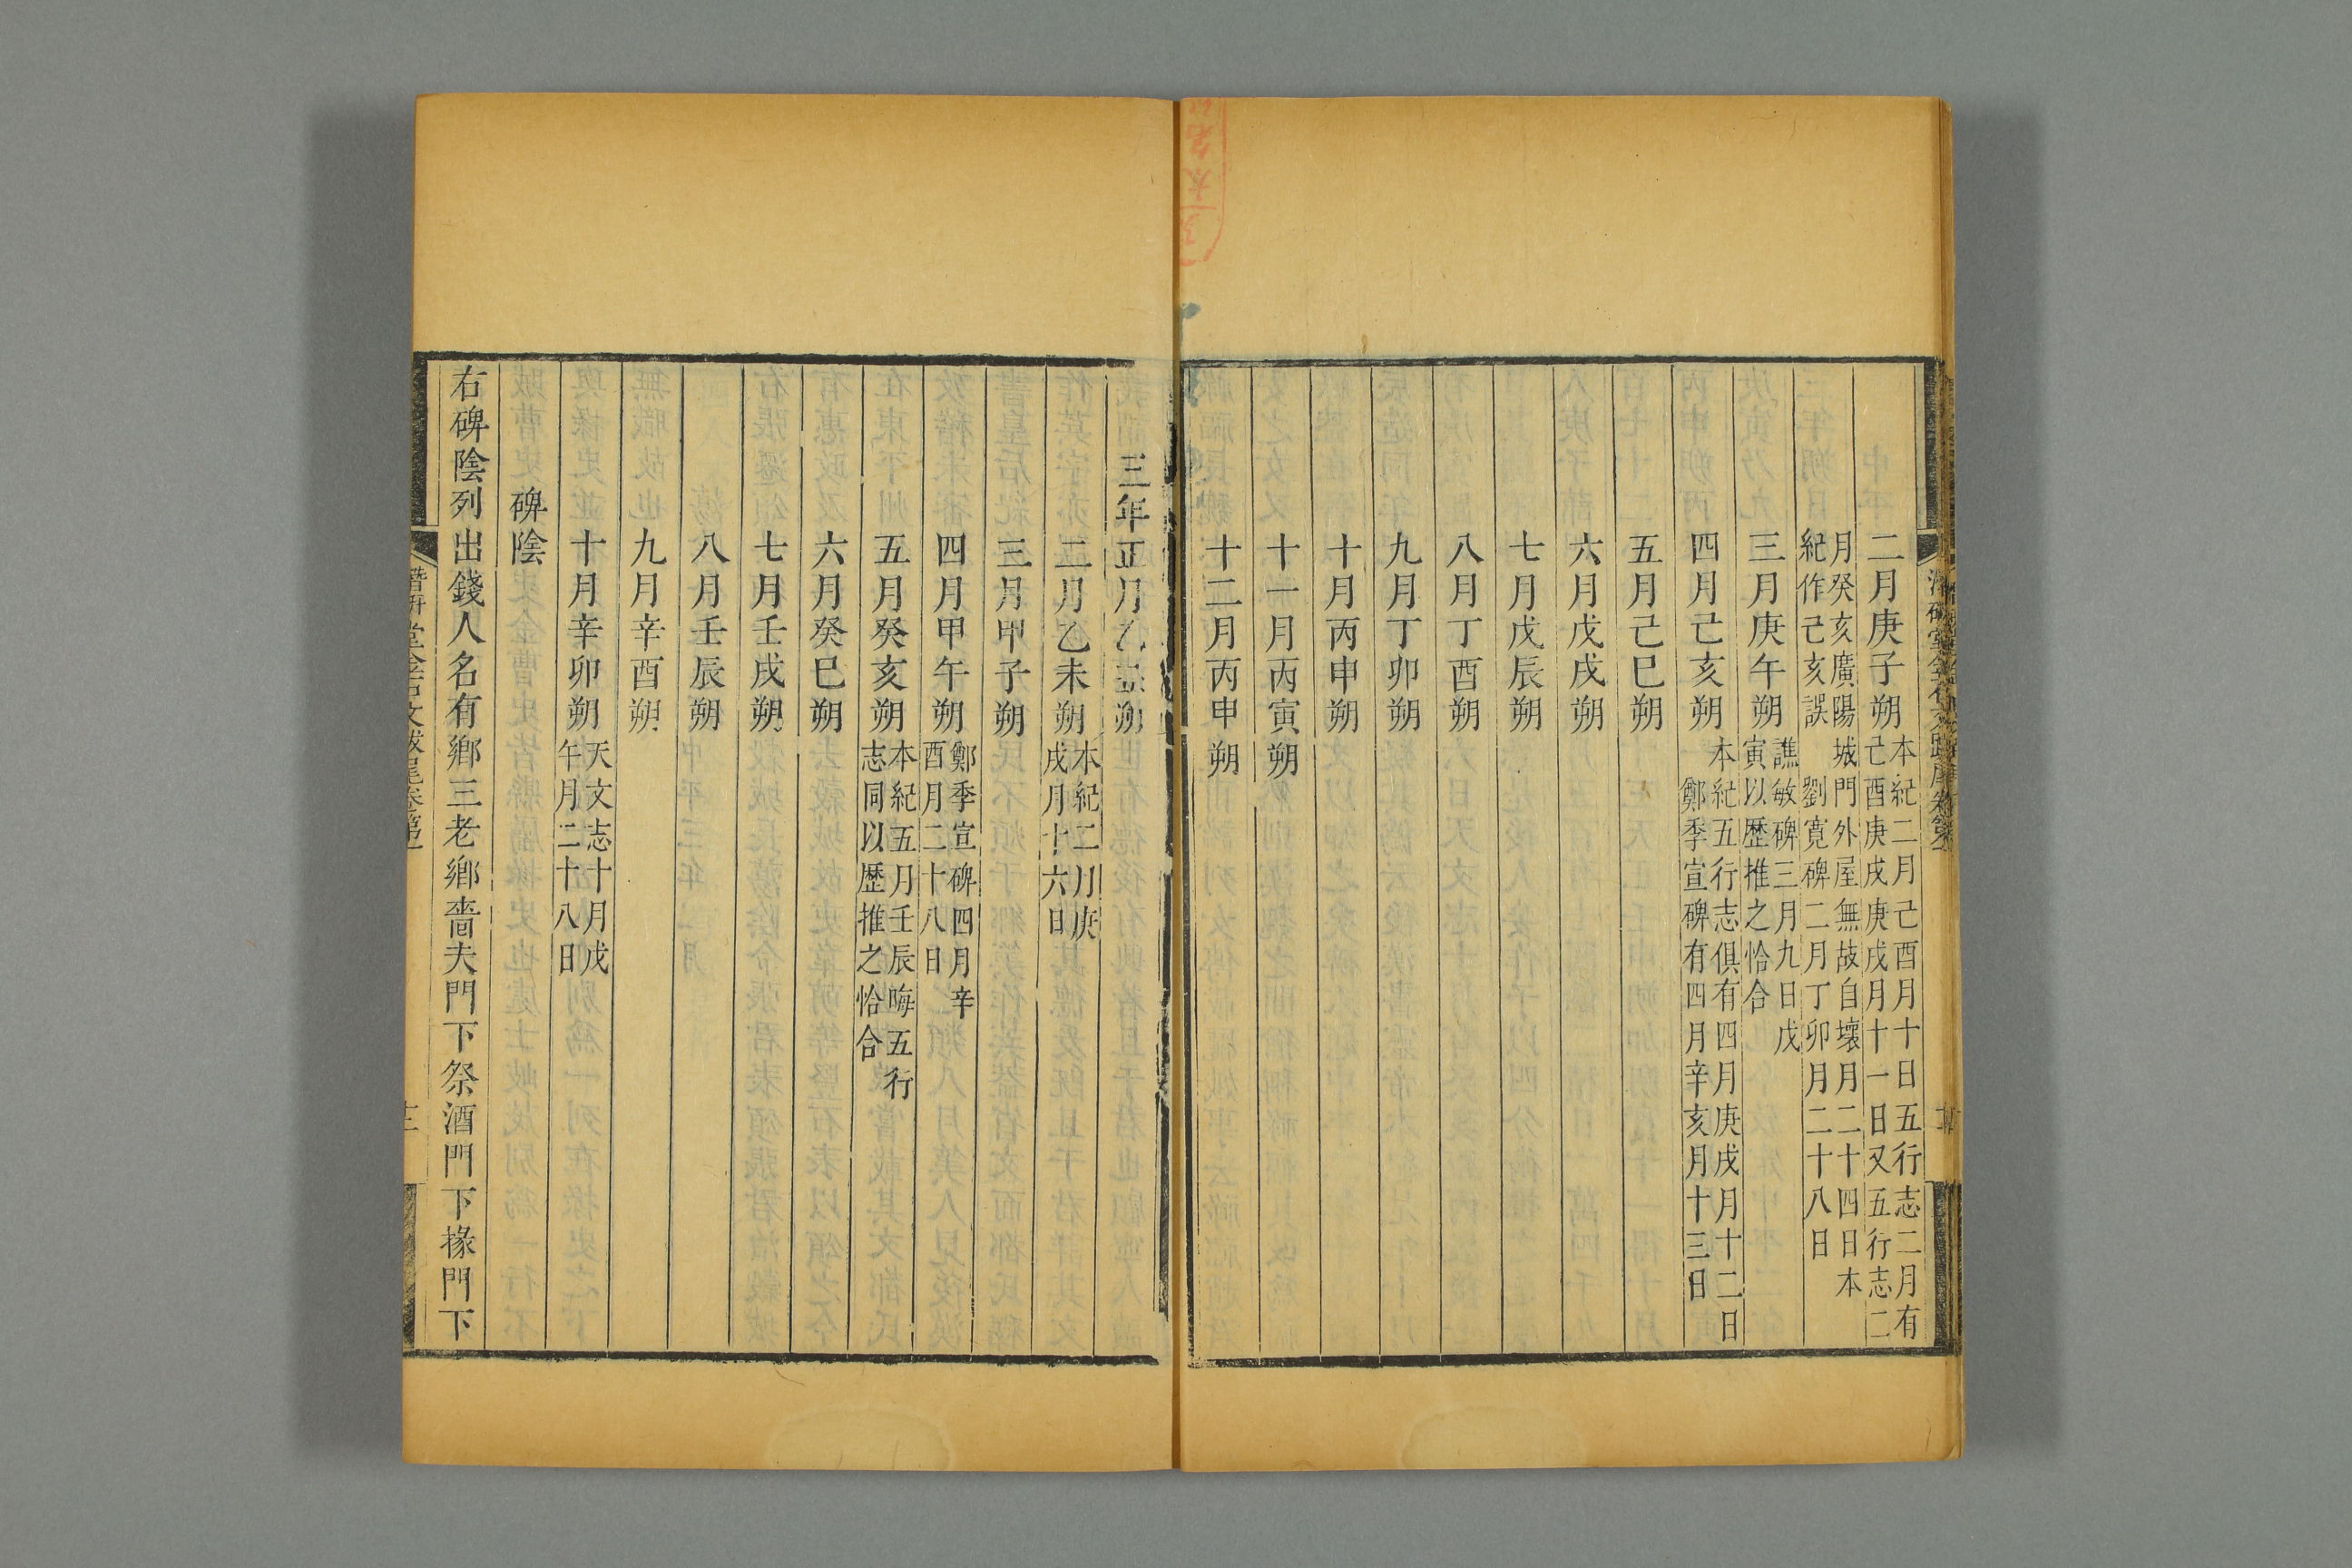 二月庚子朔本紀二月己酉月十日五行志二月有
己酉庚戌庚戌月十一日又五行志二
月癸亥廣陽城門外屋無故自壞月二十四日本
紀作己亥誤 劉寬碑二月丁卯月二十八日
三月庚午朔譙敏碑三月九日戊
寅以歷推之恰合
四月己亥朔本紀五行志俱有四月庚戌月十二日
鄭季宣碑有四月辛亥月十三日
五月己巳朔
六月戊戌朔
七月戊辰朔
八月丁酉朔
九月丁卯朔
十月丙申朔
十一月丙寅朔
十二月丙申朔
三年正月乙丑朔
二月乙未朔本紀二月庚
戌月十六日
三月甲子朔
四月甲午朔鄭季宣碑四月辛
酉月二十八日
五月癸亥朔本紀五月壬辰晦五行
志同以歷推之恰合
六月癸巳朔
七月壬戌朔
八月壬辰朔
九月辛酉朔
十月辛卯朔天文志十月戊
午月二十八日
碑陰
右碑陰列出錢人名有鄉三老鄉嗇夫門下祭酒門下掾門下